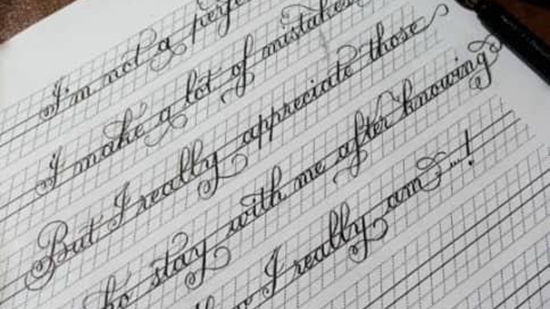 I'm not a
I make a lot of mistakes
But I really appreciate those
stay with me after knowing
I really am...!